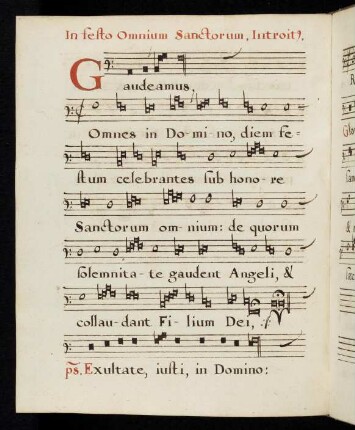 In festo Omnium Sanctorum, Introit9.
Gaudeamus,
Omnes in Do-mi-no, diem fe=
stum celebrantes sub hono-re
Sanctorum om-nium: de quorum
solemnita-te gaudent Angeli, &
collau-dant Fi-lium Dei,
ps. Exultate, iusti, in Domino: